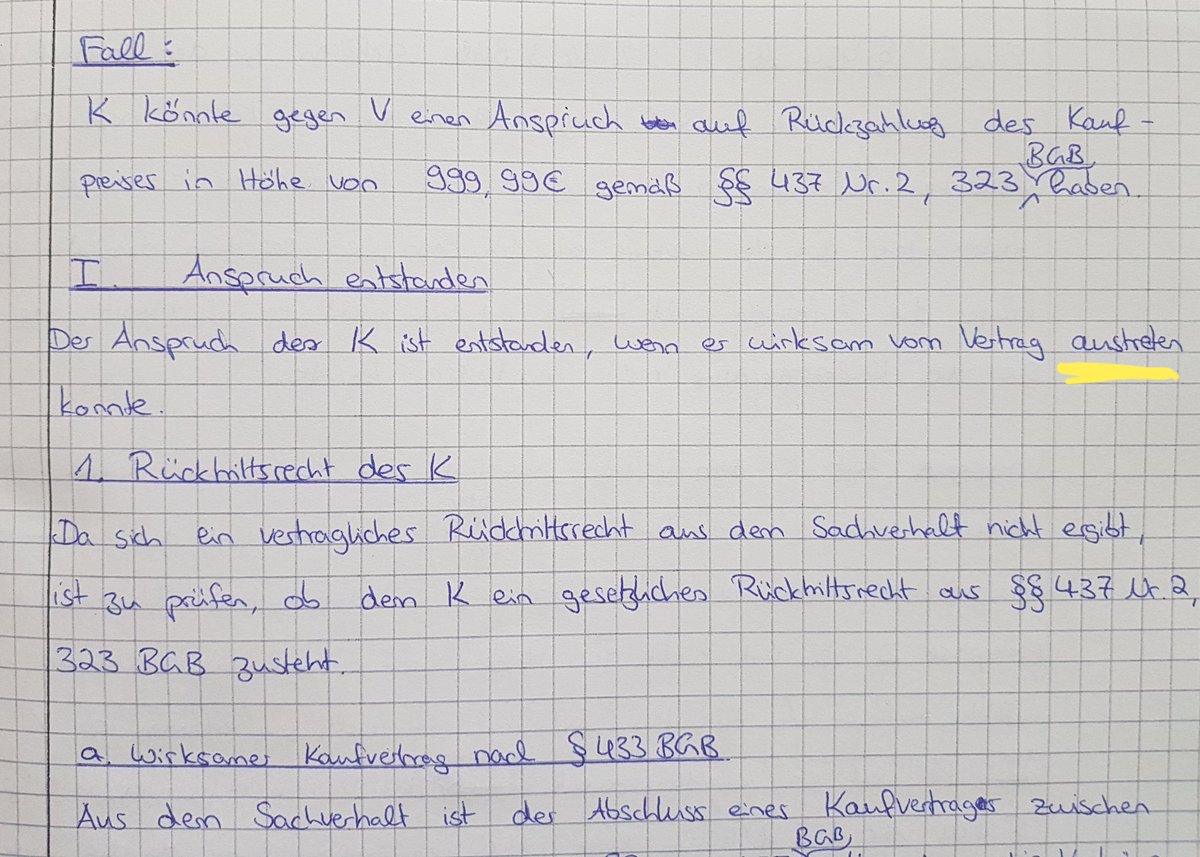 Fall:
K könnte gegen V einen Anspruch auf Rückzahlung des Kauf-
preises in Höhe von 999,99€ gemäß §§ 437 Nr. 2, 323 BGB haben.
I. Anspruch entstanden
Der Anspruch des K ist entstanden, wenn er wirksam vom Vertrag austreten
konnte.
1. Rücktrittsrecht des K
Da sich ein vertragliches Rücktrittsrecht aus dem Sachverhalt nicht ergibt,
ist zu prüfen, ob dem K ein gesetzliches Rücktrittsrecht aus §§ 437 Nr. 2,
323 BGB zusteht.
a. Wirksamer Kaufvertrag nach § 433 BGB
Aus dem Sachverhalt ist der Abschluss eines Kaufvertrags zwischen
BGB